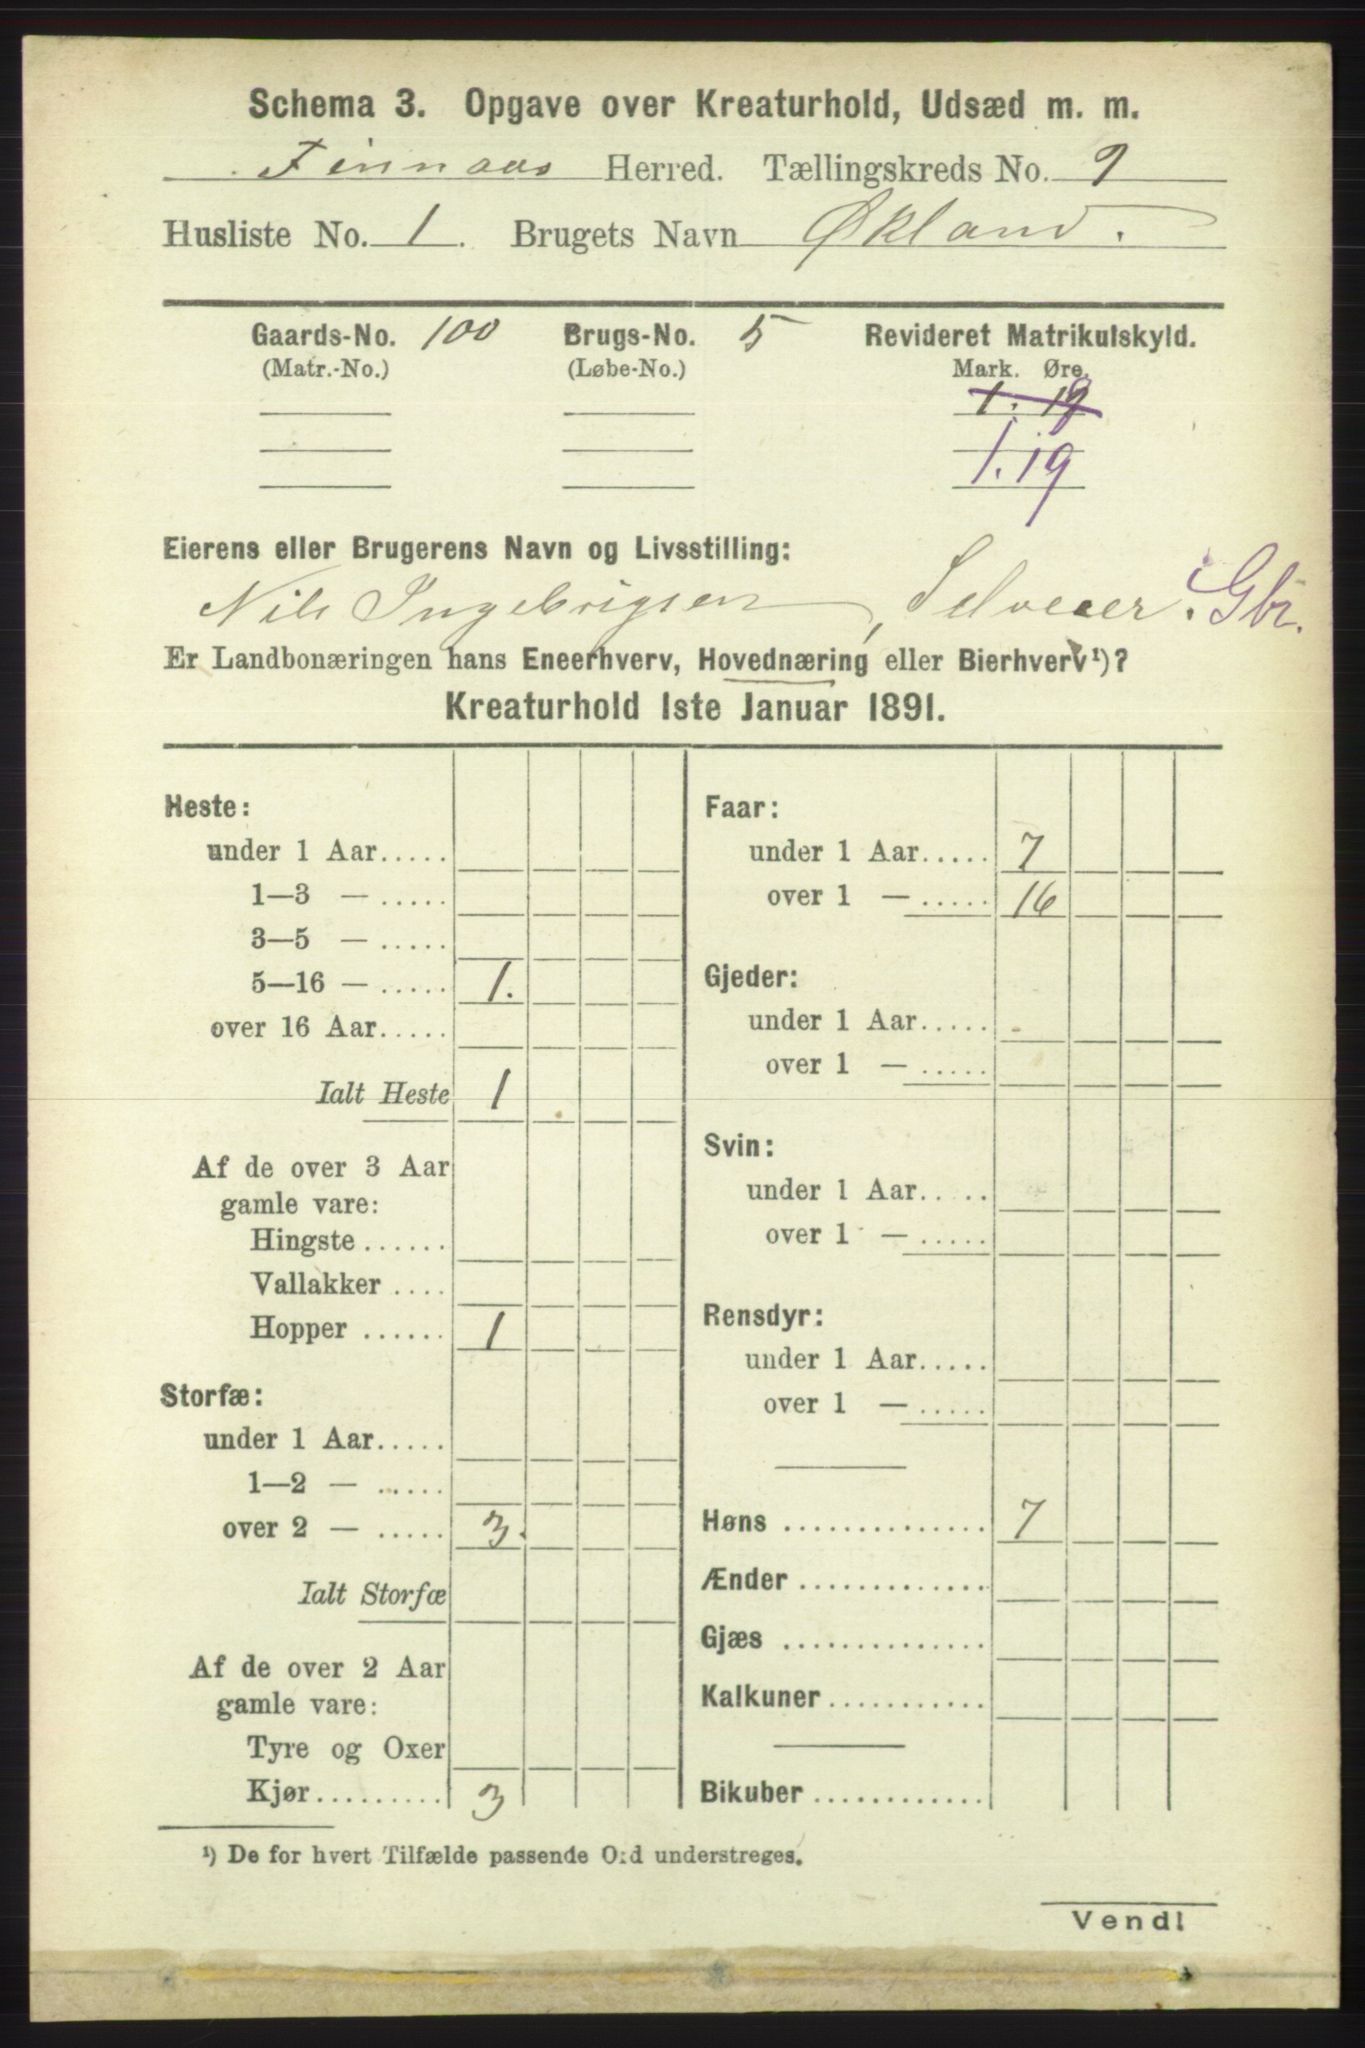 Schema 3. Opgave over Kreaturhold, Udsæd m. m.
Finnaas Herred. Tællingskreds No. 9
Husliste No. 1. Brugets Navn Økland.
Gaards-No. 100 Brugs-No. 5 Revideret Matrikulskyld.
(Matr.-No.) (Løbe-No.) Mark. Øre.
1. 19
1.19
Eierens eller Brugerens Navn og Livsstilling:
Nils Ingebrigsen, Selveier. Gbr.
Er Landbonæringen hans Eneerhverv, Hovednæring eller Bierhverv¹)?
Kreaturhold 1ste Januar 1891.
Heste:
under 1 Aar.....
1—3 — .....
3—5 — .....
5—16 — ..... 1.
over 16 Aar.....
Ialt Heste 1
Af de over 3 Aar
gamle vare:
Hingste......
Vallakker ....
Hopper ...... 1
Storfæ:
under 1 Aar.....
1—2 — .....
over 2 — ..... 3.
Ialt Storfæ
Af de over 2 Aar
gamle vare:
Tyre og Oxer
Kjør.......... 3
Faar:
under 1 Aar..... 7
over 1 — ..... 16
Gjeder:
under 1 Aar.....
over 1 — .....
Svin:
under 1 Aar.....
over 1 — .....
Rensdyr:
under 1 Aar.....
over 1 — .....
Høns .............. 7
Ænder .............
Gjæs ..............
Kalkuner ...........
Bikuber ............
¹) De for hvert Tilfælde passende Ord understreges.
Vend!